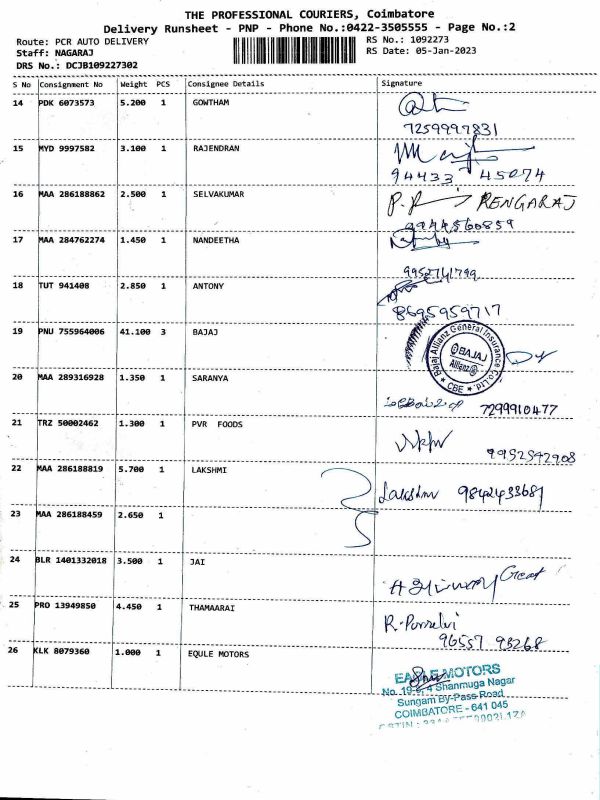 THE PROFESSIONAL COURIERS, Coimbatore
Delivery Runsheet - PNP - Phone No.:0422-3505555 - Page No.:2
Route: PCR AUTO DELIVERY
RS No.: 1092273
Staff: NAGARAJ
RS Date: 05-Jan-2023
DRS No.: DCJB109227302
S No Consignment No Weight PCS Consignee Details Signature
14 PDK 6073573 5.200 1 GOWTHAM
7259997831
15 MYD 9997582 3.100 1 RAJENDRAN
94433 45074
16 MAA 286188862 2.500 1 SELVAKUMAR P.P RENGARAJ
9944560859
17 MAA 284762274 1.450 1 NANDEETHA
9952741799
18 TUT 941408 2.850 1 ANTONY
8695959717
19 PNU 755964006 41.100 3 BAJAJ
Bajaj Allianz General Insurance Co Ltd. ★ CBE ★
BAJAJ
Allianz
20 MAA 289316928 1.350 1 SARANYA
7299910477
21 TRZ 50002462 1.300 1 PVR FOODS
9952592908
22 MAA 286188819 5.700 1 LAKSHMI
Lakshmi 9842433681
23 MAA 286188459 2.650 1
24 BLR 1401332018 3.500 1 JAI
25 PRO 13949850 4.450 1 THAMAARAI
R. Ponselvi
96557 93268
26 KLK 8079360 1.000 1 EQULE MOTORS
EAGLE MOTORS
4 Shanmuga Nagar
Sungam By-Pass Road
COIMBATORE - 641 045